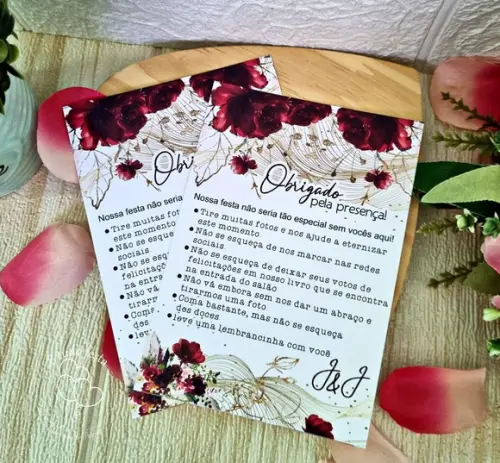 Obrigado
pela presença!
Nossa festa não seria tão especial sem vocês aqui!
●Tire muitas fotos e nos ajude a eternizar
este momento.
●Não se esqueça de nos marcar nas redes
sociais.
●Não se esqueça de deixar seus votos de
felicitações em nosso livro que se encontra
na entrada do salão
●Não vá embora sem nos dar um abraço e
tirarmos uma foto
●Coma bastante, mas não se esqueça
des doces
●leve uma lembrancinha com você
J&J
Nossa festa não seria
●Tire muitas fotos
este momento.
●Não se esqueça
sociais
●Não se es
felicitações
na entrada
●Não vá e
tirarmos
●Coma
des d
●lev